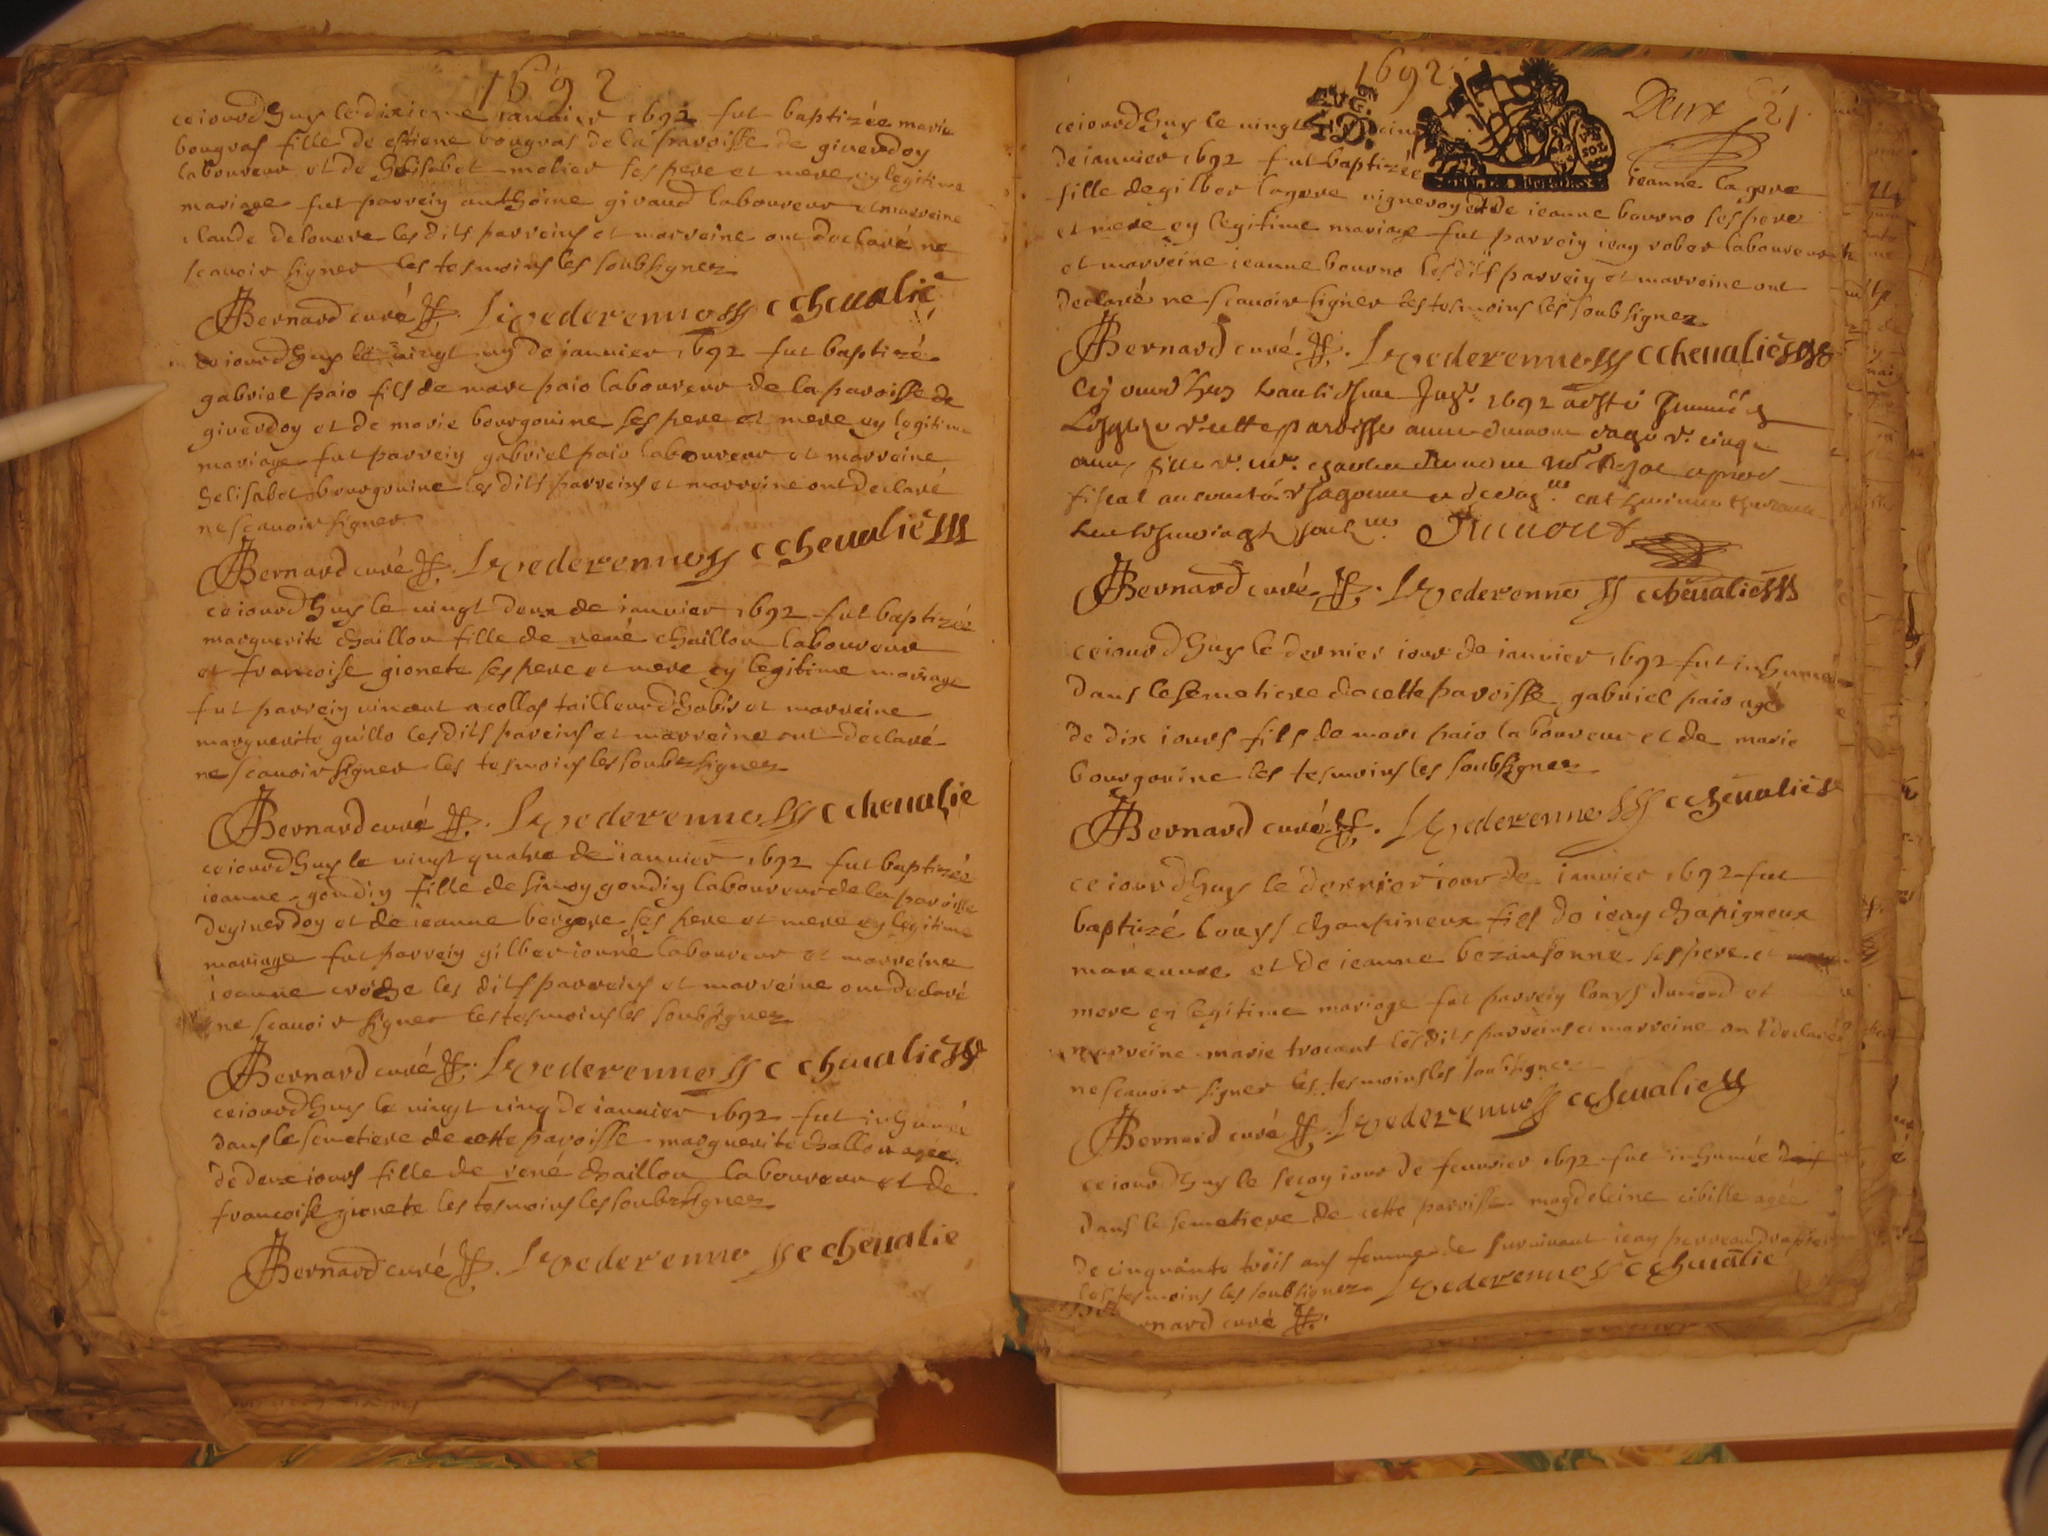 1692
ceiourdhuy le dixiesme ianvier 1692 fut baptizée marie
bougras fille de estiene bougras de la paroisse de giverdoy
laboureur et de helisabet molier ses pere et mere ey legitime
mariage fut parreiy anthoine giraud laboureur et marreine
claude delouere les dits parreins et marreine ont declaré ne
scavoir signer les tesmoins les soubsignez
Bernard curé Livederenne c chevalie
ceiourdhuy le vingt uy de ianvier 1692 fut baptizé
gabriel paio fils de marc paio laboureur de la paroisse de
giverdoy et de marie bourgouine ses pere et mere ey legitime
mariage fut parreiy gabriel paio laboureur et marreine
helisabet bourgouine les dits parreins et marreine ont declaré
ne scavoir signer
Bernard curé Lvederenne c chevalie
ceiourdhuy le vingt deux de ianvier 1692 fut baptizée
marguerite chaillou fille de rené chaillou laboureur
et francoise gionete ses pere et mere ey legitime mariage
fut parreiy vincent acollas tailleur dhabis et marreine
marguerite guillo les dits pareins et marreine ont declaré
ne scavoir signer les tesmoins les soubzsignez
Bernard curé Lvederenne c chevalie
ceiourdhuy le vingt quatre de ianvier 1692 fut baptizée
ieanne goudiy fille de simoy goudiy laboureur de la paroisse
de giverdoy et de ieanne bergere ses pere et mere ey legitime
mariage fut parreiy gilber ionné laboureur et marreine
ieanne croize les dits parreins et marreine ont declaré
ne scavoir signer les tesmoins les soubsignez
Bernard curé Lvederenne c chevalie
ceiourdhuy le vingt cinq de ianvier 1692 fut inhumée
dans le semetiere de cette paroisse marguerite challou agée
de deux iours fille de rené chaillou laboureur et de
francoise gionete les tesmoins les soubzsignez
Bernard curé Lvederenne c chevalie
1692
Deux 21
ceiourdhuy le vingt cinq
de ianvier 1692 fut baptizée ieanne lagore
fille de gilber lagore vigneroy et de ieanne bourno ses pere
et mere ey legitime mariage fut parreiy ieay rober laboureur
et marreine ieanne bourno les dits parreiy et marreine ont
declaré ne scavoir signer les tesmoins les soubsignez
Bernard curé Lvederenne c chevalie
1692 a esté
paroisse
fille
fiscal
Bernard curé Lvederenne c chevalie
ceiourdhuy le dernier iour de ianvier 1692 fut inhumé
dans le semetiere de cette paroisse gabriel paio agé
de dix iours fils de marc paio laboureur et de marie
bourgouine les tesmoins les soubsignez
Bernard curé Lvederenne c chevalie
ceiourdhuy le dernier iour de ianvier 1692 fut
baptizé louys chanpineux fils de ieay chapigneux
maneuvre et de ieanne bezansonne ses pere et
mere ey legitime mariage fut parreiy louys dumond et
marreine marie trocaut les dits parreins et marreine ont declaré
ne scavoir signer les tesmoins les soubsignez
Bernard curé Lvederenne c chevalie
ceiourdhuy le secoy iour de feuvrier 1692 fut inhumée
dans le semetiere de cette paroisse magdeleine cibille agée
de cinquante trois ans femme de survivant ieay perreau drapier
les tesmoins les soubsignez Lvederenne c chevalie
Bernard curé